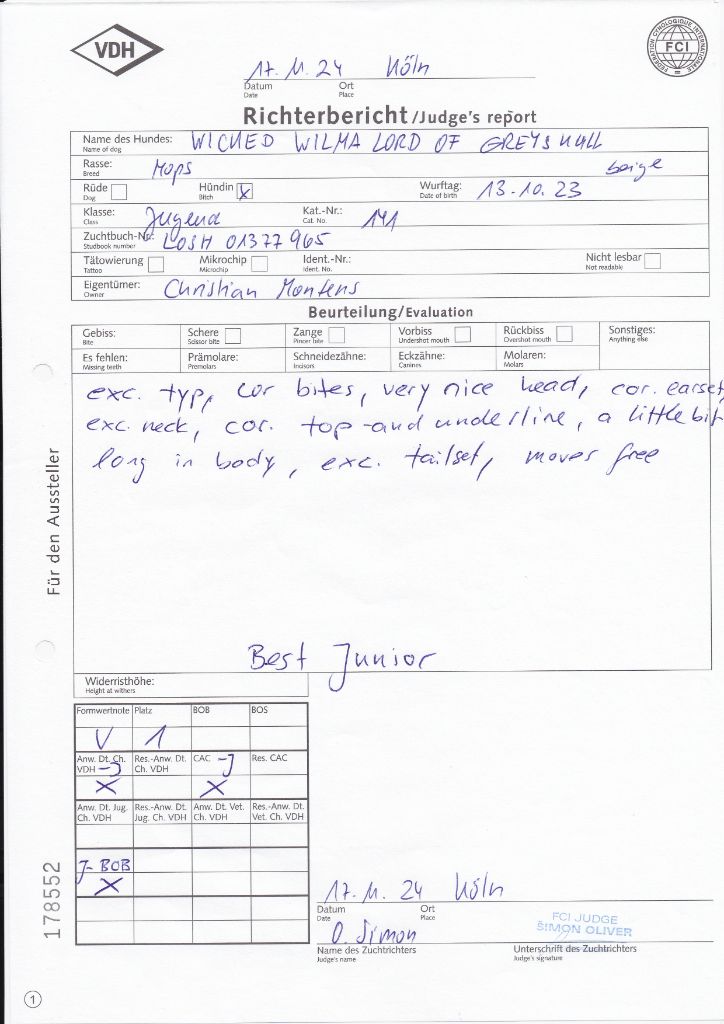 VDH
FEDERATION CYNOLOGIQUE INTERNATIONALE
FCI
17.11.24 Köln
Datum Ort
Date Place
Richterbericht/Judge's report
Name des Hundes: WICKED WILMA LORD OF GREYSKULL
Name of dog
Rasse: Mops beige
Breed
Rüde Hündin x Wurftag: 13.10.23
Dog Bitch Date of birth
Klasse: Jugend Kat.-Nr.: 141
Class Cat. No.
Zuchtbuch-Nr.: LOSH 01377965
Studbook number
Tätowierung Mikrochip Ident.-Nr.: Nicht lesbar
Tattoo Microchip Ident. No. Not readable
Eigentümer: Christian Montens
Owner
Beurteilung/Evaluation
Gebiss: Schere Zange Vorbiss Rückbiss Sonstiges:
Bite Scissor bite Pincer bite Undershot mouth Overshot mouth Anything else
Es fehlen: Prämolare: Schneidezähne: Eckzähne: Molaren:
Missing teeth Premolars Incisors Canines Molars
exc. typ, cor bites, very nice head, cor. earset,
exc. neck, cor. top-and underline, a little bit
long in body, exc. tailset, moves free
Für den Aussteller
Best Junior
Widerristhöhe:
Height at withers
Formwertnote Platz BOB BOS
V 1
Anw. Dt. Ch. Res.-Anw. Dt. CAC -J Res. CAC
VDH -J Ch. VDH
X X
Anw. Dt. Jug. Res.-Anw. Dt. Anw. Dt. Vet. Res.-Anw. Dt.
Ch. VDH Jug. Ch. VDH Ch. VDH Vet. Ch. VDH
J-BOB
X
178552
17.11.24 Köln
Datum Ort
Date Place
O. Simon
FCI JUDGE
SIMON OLIVER
Name des Zuchtrichters Unterschrift des Zuchtrichters
Judge's name Judge's signature
1